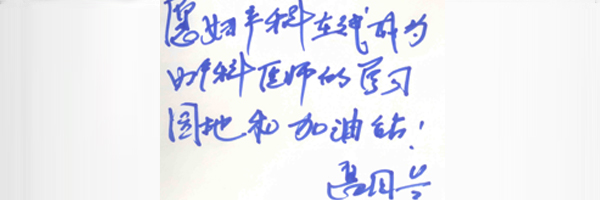 愿妇产科在线成为
妇产科医师的学习
园地和加油站!